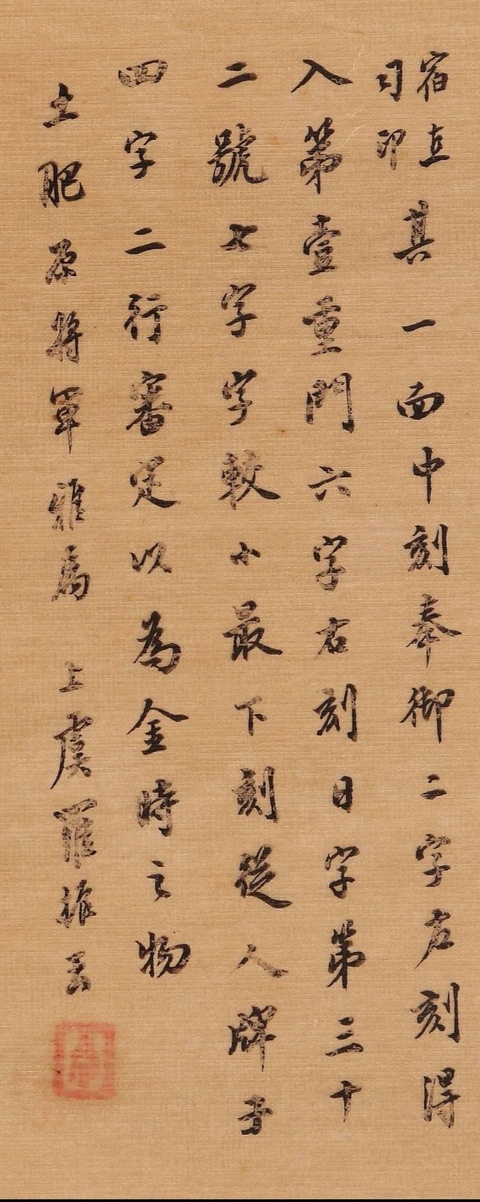 宿直司印其一面中刻奉御二字左刻得
入第壹重門六字右刻日字第三十
二號七字字較小最下刻從人牌子
四字二行審定以為金時之物
土肥原將軍雅屬 上虞羅振玉